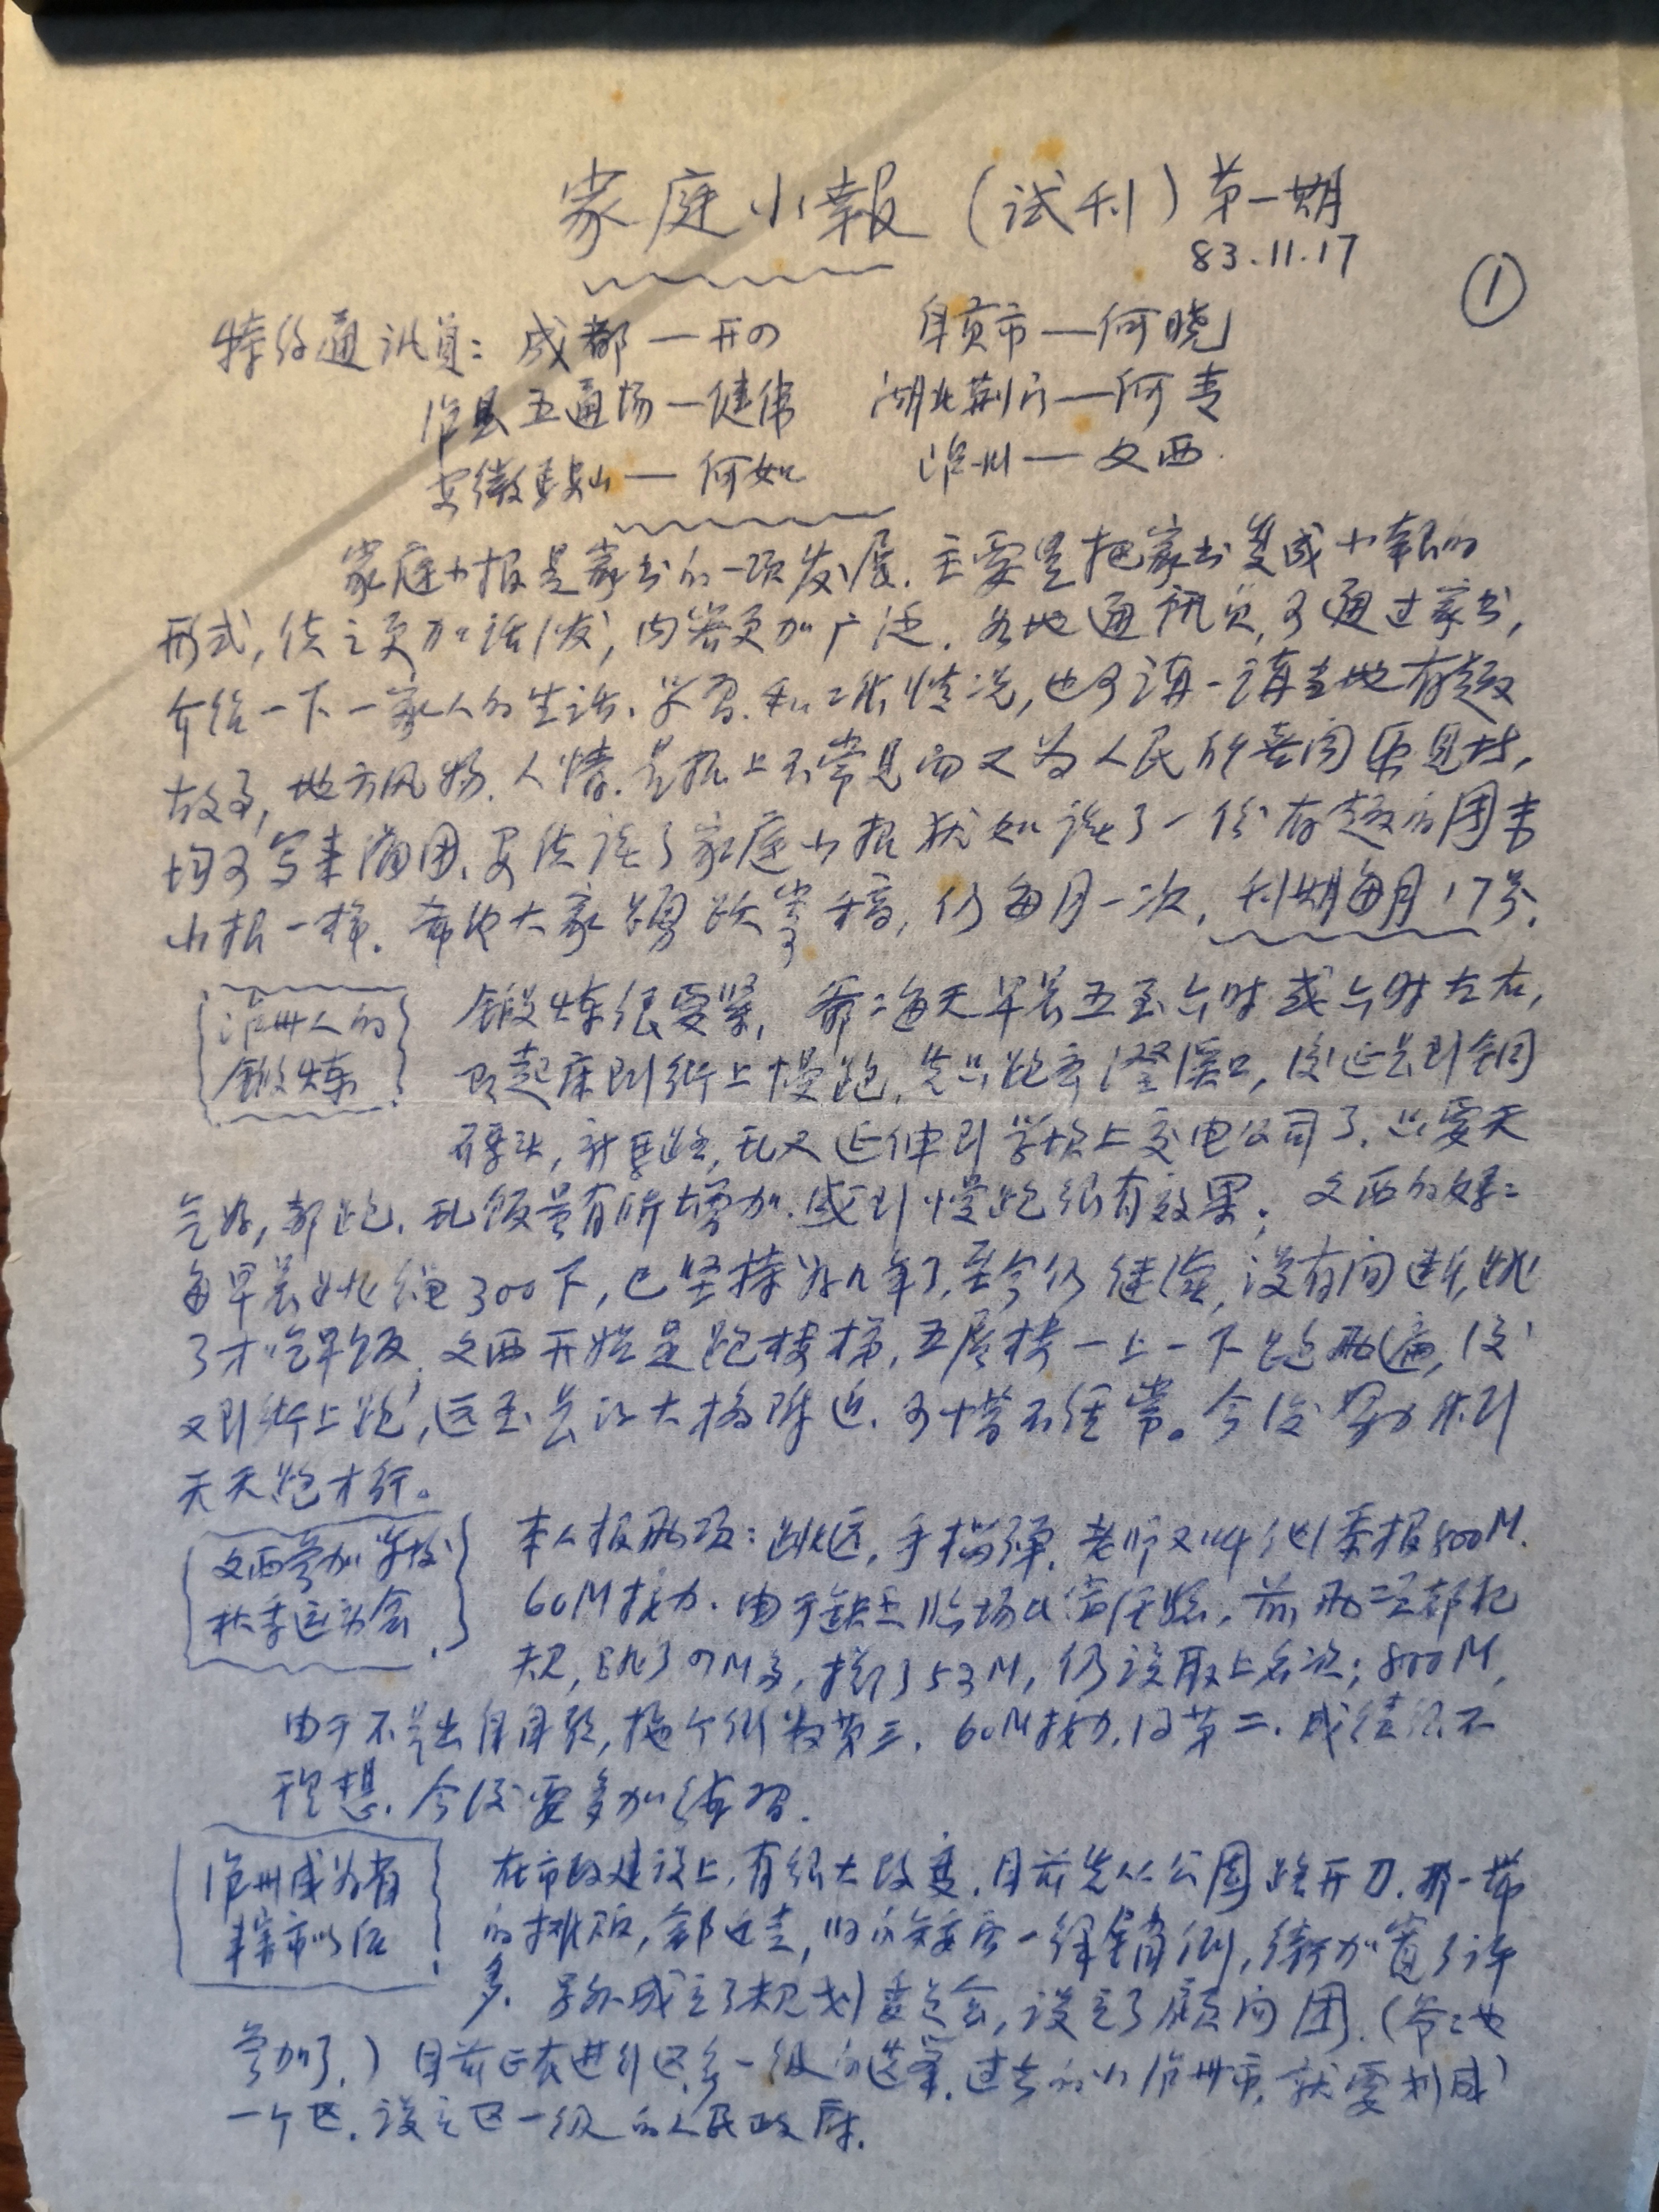 家庭小報（试刊）第一期
83.11.17
①
特约通讯员：成都—开の 自贡市—何晓
泸县五通场—健伟 湖北荆门—何专
安徽马鞍山—何如 泸州—文西
家庭小报是家书的一项发展.主要是把家书变成小報的
形式,使之更加活泼,内容更加广泛.各地通讯员,可通过家书,
介绍一下一家人的生活、学习、和工作情况,也可讲一讲当地有趣
故事,地方风物.人情.是报上不常见而又为人民所喜闻乐见者,
均可写来.要使读了家庭小报犹如读了一份有趣的周末
小报一样.希望大家踴跃寄稿,仍每月一次,刊期每月17号.
泸州人的
鍛炼
鍛炼很要紧,爺二每天早晨五至六时或六时左右,
即起床到街上慢跑,先只跑至澄溪口,后延长到铜
码头,新馬路,现又延伸到学坝上交电公司了.只要天
气好,都跑.现饭量有所增加.感到慢跑很有效果;文西的妈二
每早晨跳绳300下,已坚持好几年了,至今仍继续,没有间断,跳
了才吃早饭.文西开始是跑楼梯,五层楼一上一下跑两遍,后
又到街上跑,远至长江大桥附近.可惜不经常。今后要努力作到
天天跑才行。
文西参加学校
秋季运动会
本人报两项：跳远,手榴弹.老师又叫他兼报800M.
60M接力.由于缺乏临场比赛经验,前两项都犯
规,跳了のM多,掷了53M,仍没取上名次;800M,
由于不是出自自愿,拖个倒数第三.60M接力,得第二.成绩很不
理想.今后要多加练习.
泸州成为省
辖市以后
在市政建设上,有很大改变.目前先从公園路开刀.那一带
的排版,都迁走,旧的一律銷倒,街加宽了许
多.另外成立了规划委员会,设立了顾问团.(爷二也
参加了.)目前正在进行区乡一级的选举.过去的小泸州市,就要划成
一个区.设立区一级的人民政府.